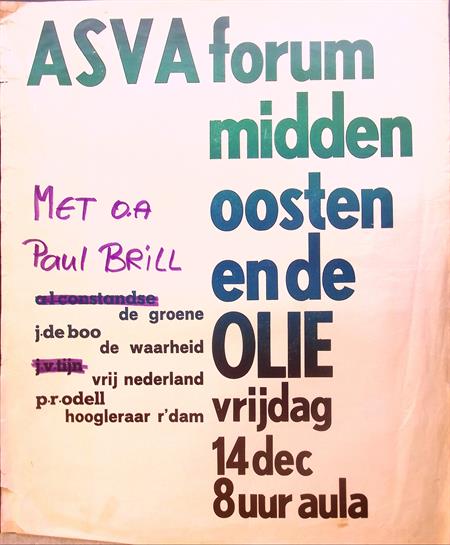 ASVA forum
midden
oosten
en de
OLIE
vrijdag
14 dec
8 uur aula
MET O.A
Paul BRILL
a l constandse
de groene
j.de boo
de waarheid
j.v.tijn
vrij nederland
p.r.odell
hoogleraar r'dam